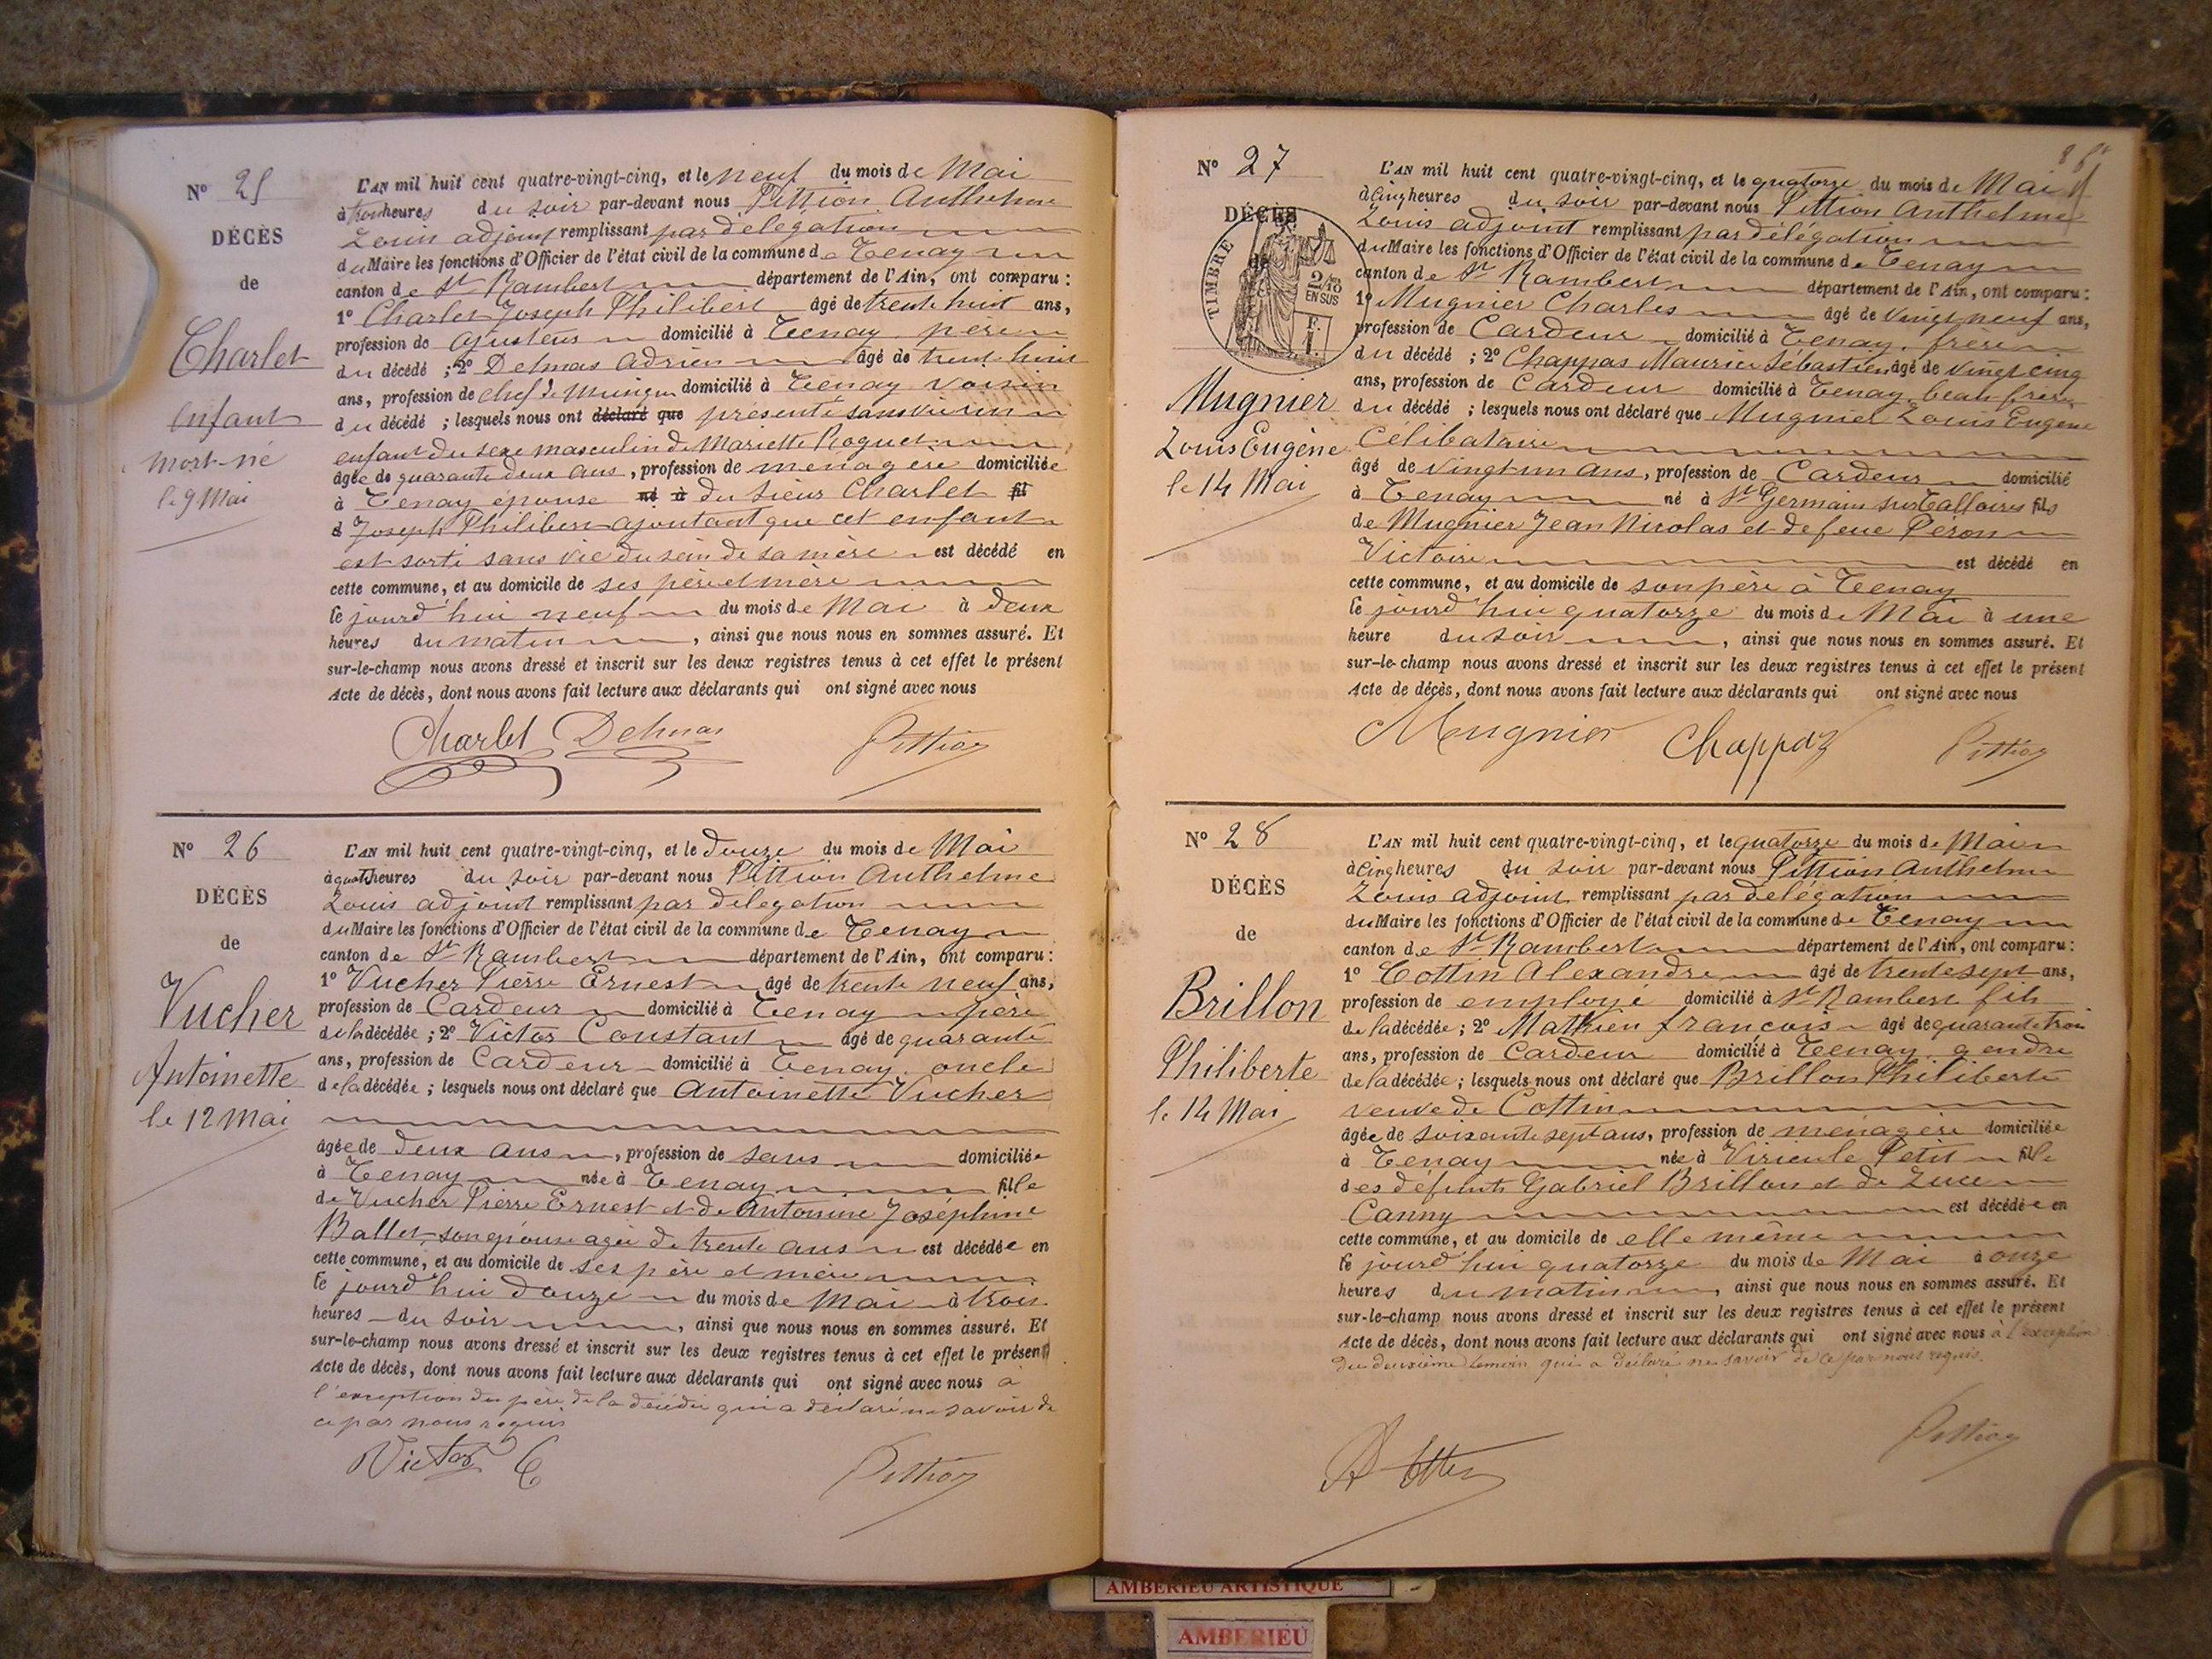 N° 25
DÉCÈS
de
Charlet
enfant
mort-né
le 9 Mai
L'AN mil huit cent quatre-vingt-cinq, et le neuf du mois de Mai
à trois heures du soir par-devant nous Pittion Anthelme
Louis adjoint remplissant par délégation
du Maire les fonctions d'Officier de l'état civil de la commune de Tenay
canton de St Rambert département de l'Ain, ont comparu :
1° Charlet Joseph Philibert âgé de trente huit ans,
profession de ajusteur domicilié à Tenay père
du décédé ; 2° Delmas Adrien âgé de trente huit
ans, profession de chef de musique domicilié à Tenay voisin
du décédé ; lesquels nous ont déclaré que présenté sans vie un
enfant du sexe masculin de Mariette Roguet
âgée de quarante deux ans, profession de menagère domiciliée
à Tenay épouse né à du sieur Charlet fil
d Joseph Philibert ajoutant que cet enfant
est sorti sans vie du sein de sa mère est décédé en
cette commune, et au domicile de ses père et mère
le jourd'hui neuf du mois de Mai à deux
heures du matin, ainsi que nous nous en sommes assuré. Et
sur-le-champ nous avons dressé et inscrit sur les deux registres tenus à cet effet le présent
Acte de décès, dont nous avons fait lecture aux déclarants qui ont signé avec nous
Charlet Delmas Pittion
N° 26
DÉCÈS
de
Vucher
Antoinette
le 12 Mai
L'AN mil huit cent quatre-vingt-cinq, et le douze du mois de Mai
à quat. heures du soir par-devant nous Pittion Anthelme
Louis adjoint remplissant par délégation
du Maire les fonctions d'Officier de l'état civil de la commune de Tenay
canton de St Rambert département de l'Ain, ont comparu :
1° Vucher Pierre Ernest âgé de trente neuf ans,
profession de Cardeur domicilié à Tenay père
de la décédée ; 2° Victor Constant âgé de quarante
ans, profession de Cardeur domicilié à Tenay oncle
de la décédée ; lesquels nous ont déclaré que Antoinette Vucher
âgée de deux ans, profession de sans domiciliée
à Tenay née à Tenay fille
de Vucher Pierre Ernest et de Antonine Joséphine
Ballet son épouse agée de trente ans est décédée en
cette commune, et au domicile de ses père et mère
le jourd'hui douze du mois de Mai à trois
heures du soir, ainsi que nous nous en sommes assuré. Et
sur-le-champ nous avons dressé et inscrit sur les deux registres tenus à cet effet le présent
Acte de décès, dont nous avons fait lecture aux déclarants qui ont signé avec nous a
l'exception du père de la décédée qui a déclaré ne savoir de
ce par nous requis
Victor C Pittion
N° 27
DÉCÈS
de
TIMBRE
2/10
EN SUS
F.
1.
Mugnier
Louis Eugène
le 14 Mai
L'AN mil huit cent quatre-vingt-cinq, et le quatorze du mois de Mai
à Cinq heures du soir par-devant nous Pittion Anthelme
Louis adjoint remplissant par délégation
du Maire les fonctions d'Officier de l'état civil de la commune de Tenay
canton de St Rambert département de l'Ain, ont comparu :
1° Mugnier Charles âgé de vingt neuf ans,
profession de Cardeur domicilié à Tenay frère
du décédé ; 2° Chappas Maurice Sébastien âgé de vingt cinq
ans, profession de Cardeur domicilié à Tenay beau frère
du décédé ; lesquels nous ont déclaré que Mugniel Louis Eugène
Célibataire
âgé de vingt un ans, profession de Cardeur domicilié
à Tenay né à St Germain sur Talloires fils
de Mugnier Jean Nicolas et de feue Péron
Victoire est décédé en
cette commune, et au domicile de son père à Tenay
le jourd'hui quatorze du mois de Mai à une
heure du soir, ainsi que nous nous en sommes assuré. Et
sur-le-champ nous avons dressé et inscrit sur les deux registres tenus à cet effet le présent
Acte de décès, dont nous avons fait lecture aux déclarants qui ont signé avec nous
Mugnier Chappaz Pittion
N° 28
DÉCÈS
de
Brillon
Philiberte
le 14 Mai
L'AN mil huit cent quatre-vingt-cinq, et le quatorze du mois de Mai
à Cinq heures du soir par-devant nous Pittion Anthelme
Louis adjoint remplissant par délégation
du Maire les fonctions d'Officier de l'état civil de la commune de Tenay
canton de St Rambert département de l'Ain, ont comparu :
1° Cottin Alexandre âgé de trente sept ans,
profession de employé domicilié à St Rambert fils
de la décédée ; 2° Mathieu françois âgé de quarante trois
ans, profession de Cardeur domicilié à Tenay gendre
de la décédée ; lesquels nous ont déclaré que Brillon Philiberte
veuve de Cottin
âgée de soixante sept ans, profession de ménagère domiciliée
à Tenay née à Virieu le Petit fille
des défunts Gabriel Brillon et de Luce
Canny est décédée en
cette commune, et au domicile de elle même
le jourd'hui quatorze du mois de Mai à onze
heures du matin, ainsi que nous nous en sommes assuré. Et
sur-le-champ nous avons dressé et inscrit sur les deux registres tenus à cet effet le présent
Acte de décès, dont nous avons fait lecture aux déclarants qui ont signé avec nous à l'exception
du deuxième témoin qui a déclaré ne savoir de ce par nous requis.
Pittion
AMBERIEU ARTISTIQUE
AMBERIEU